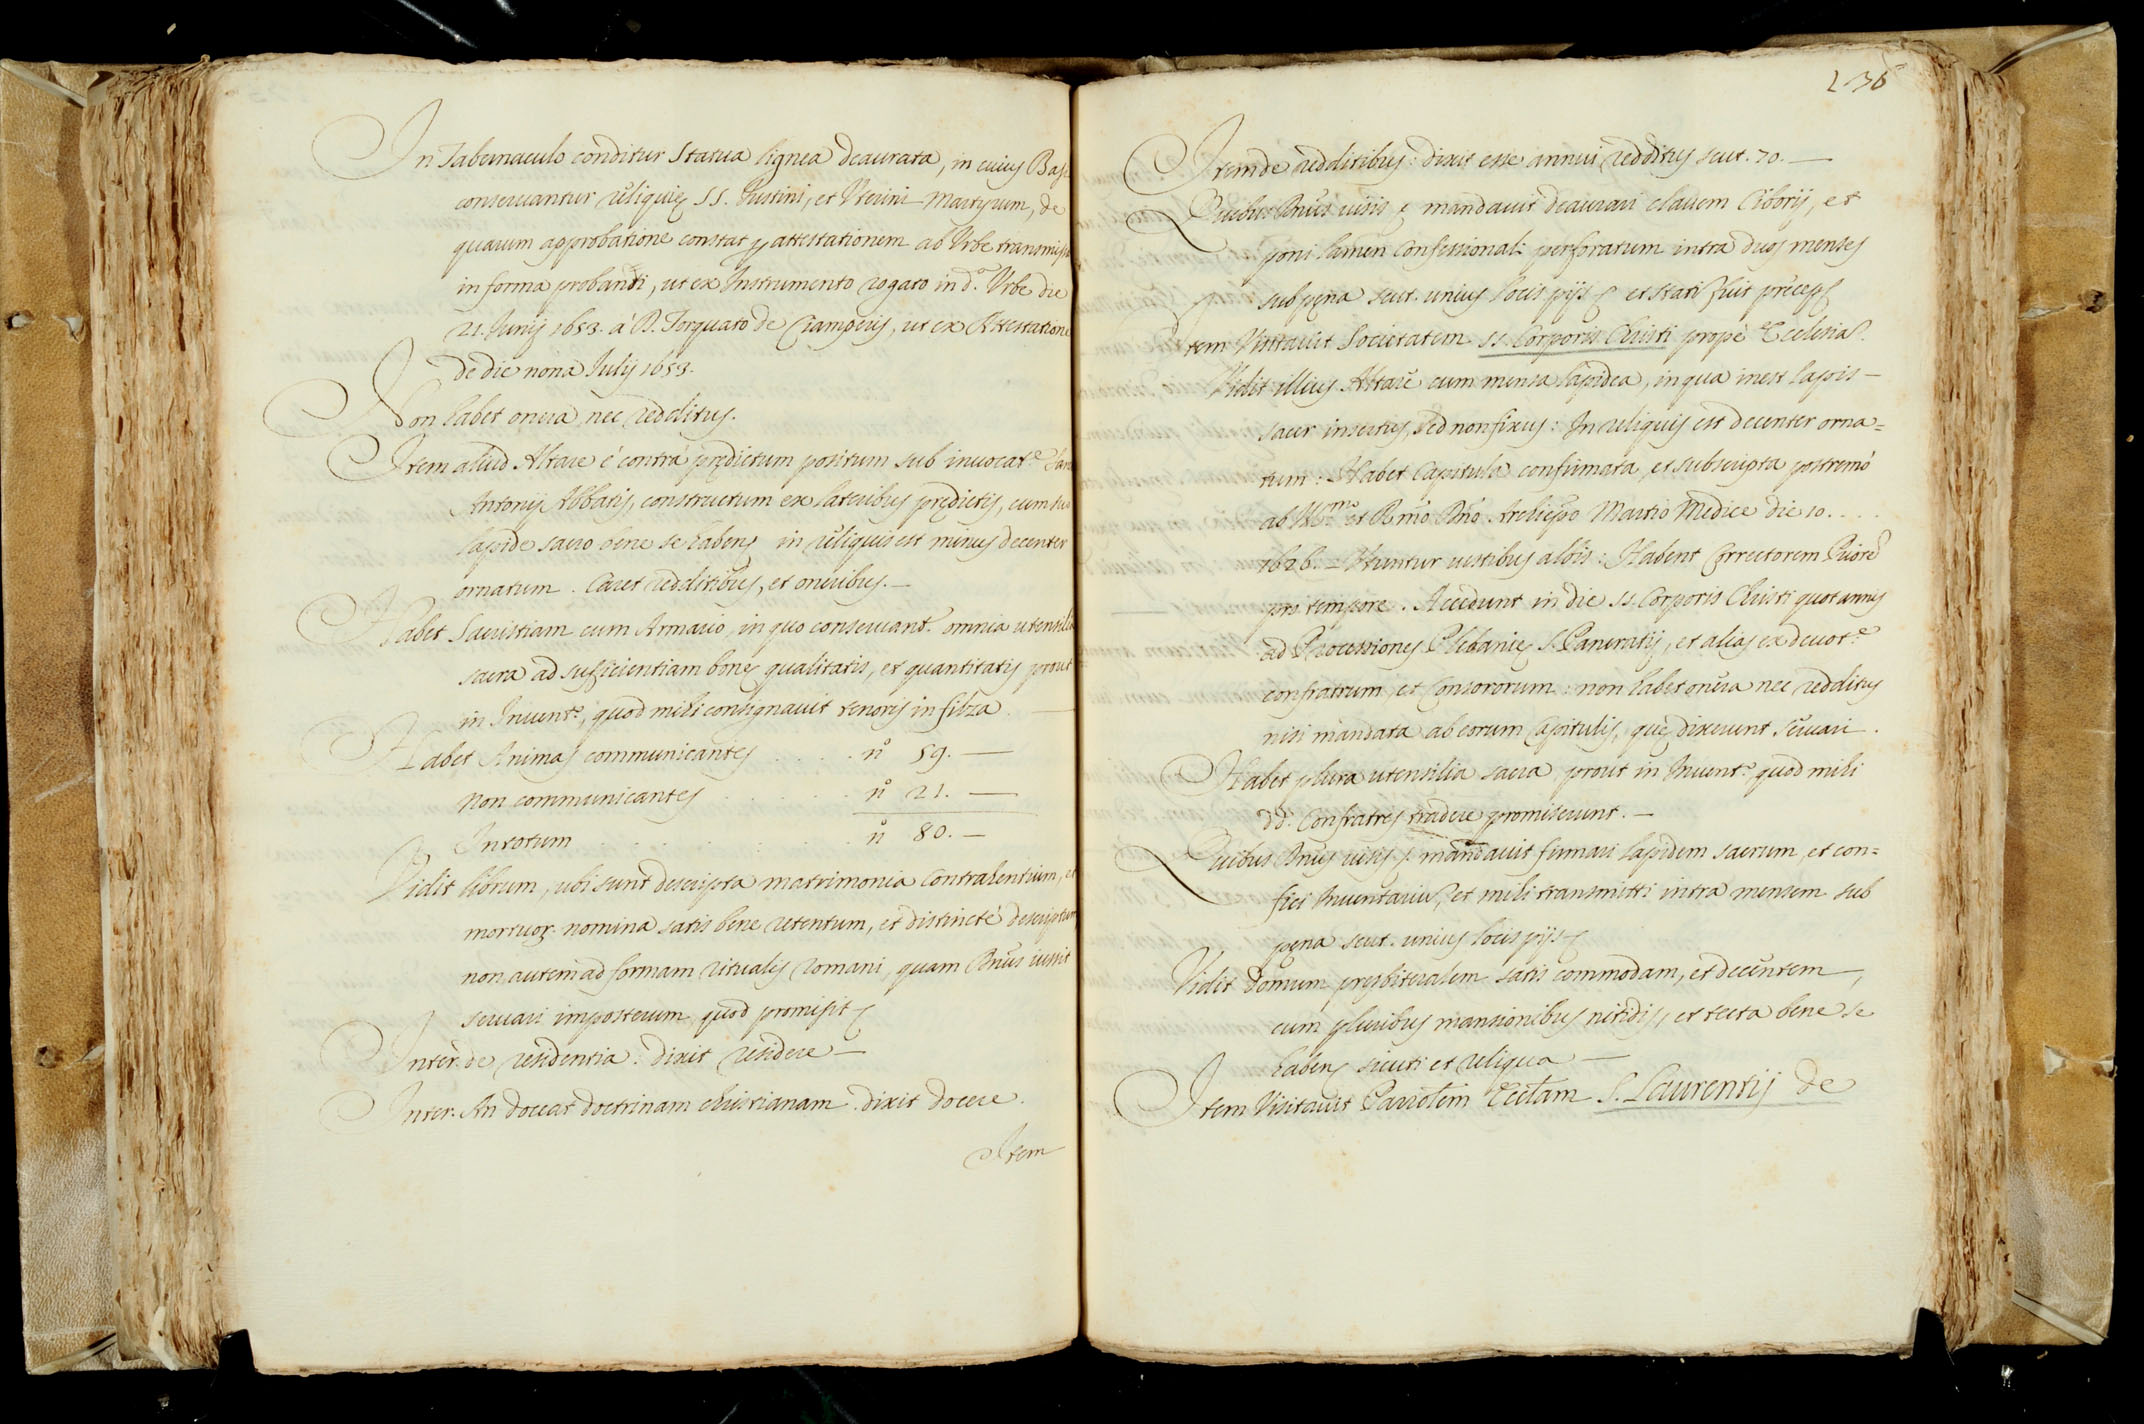 In Tabernaculo conditur Statua lignea deaurata, in cuius Basi
conseruantur reliquię SS. Iustini, et Verini Martyrum, de
quarum approbatione constat ꝑ attestationem ab Vrbe transmiss
in forma probanti, ut ex Instrumento rogato in d.ª Vrbe die
21. Iunij 1653. à D. Torquato de Ciamperijs, ut ex Attestatione
de die nona Iulij 1653.
Non habet onera, nec redditus.
Item aliud Altare è contrà prędictum positum sub inuocat.e
Antonij Abbatis, constructum ex lateribus prędictis, cum suo
lapide sacro bene se habens in reliquis est minus decenter
ornatum. Caret redditibus, et oneribus. —
Habet Sacristiam cum Armario, in quo conseruant.r omnia utensilia
sacra ad sufficientiam bonę qualitatis, et quantitatis prout
in Inuent.o, quod mihi consignauit tenoris in filza —
Habet Animas communicantes . . . . nº 59. —
non communicantes . . . . . . nº 21. —
In totum . . . . . . . . nº 80. —
Vidit librum, ubi sunt descripta matrimonia contrahentium, et
mortuoꝝ nomina satis bene retentum, et distinctè descriptum
non autem ad formam ritualis romani, quam Dnus iussit
seruari imposterum quod promisit
Inter. de residentia: dixit residere —
Inter. An doceat doctrinam christianam. dixit docere.
Item
236
Item de redditibus: dixit esse annui redditus scut. 70. —
Quibus Dnus uisis mandauit deaurari clauem Ciborij, et
poni lamen confessionali perforatum intra duos menses
sub pęna scut. unius locis pijs et stati fuit
Item Visitauit Societatem SS. Corporis Christi propè Ecclesia
Vidit illius Altare cum mensa lapidea, in qua inest lapis —
sacer insertus, sed non fixus: In reliquis est decenter orna=
tum: Habet Capitula confirmata, et subscripta postremò
ab Ill.mo et Rmo Dno Archiepo Martio Medice die 10. . . .
1626. — Vtuntur uestibus albis: Habent Correctorem Priorē
pro tempore. Accedunt in die SS. Corporis Christi quot annis
ad Processiones Plebanię S. Pancratij, et alias ex deuot.e
confratrum et Consororum: non habet onera nec redditus
nisi mandata ab eorum Capitulis, quę dixerunt seruari.
Habet plura utensilia sacra prout in Inuent.o quod mihi
dd. Confratres tradere promiserunt. —
Quibus Dnus uisis mandauit firmari lapidem sacrum, et con=
fici Inuentariū, et mihi transmitti intra mensem sub
pęna scut. unius locis pijs
Vidit Domum presbiteralem satis commodam, et decentem —,
cum pluribus mansionibus nitidis, et tecta bene se
habens sicuti et reliqua —
Item Visitauit Parrolem Ecclam S. Laurentij de